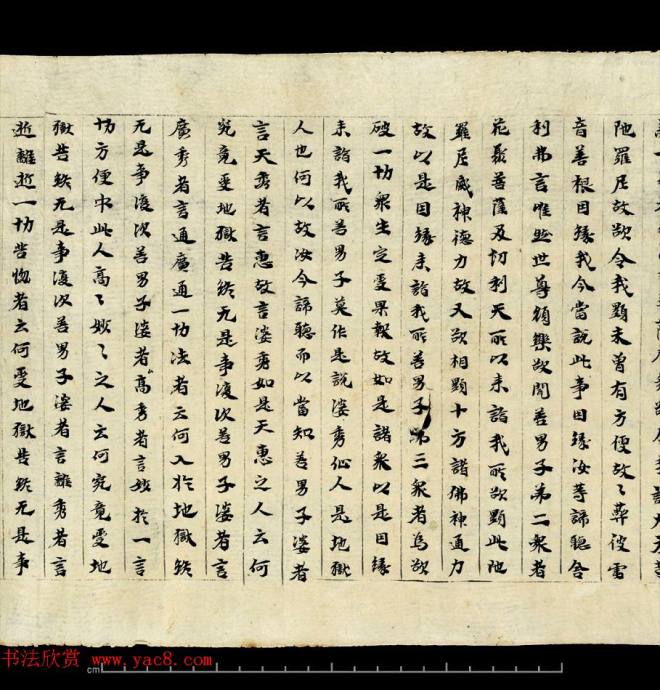 陁羅尼故欲令我顯未曾有方便故〻葬彼雷
音善根因緣我今當說此事因緣汝等諦聽舍
利弗言唯然世尊願樂欲聞善男子第二衆者
花聚菩薩及忉利天所以来詣我所欲顯此陁
羅尼威神德力故又欲相顯十方諸佛神通力
故以是因緣来詣我所善男子第三衆者為欲
破一切衆生定受果報故如是諸衆以是因緣
来詣我所善男子莫作是說婆秀仙人是地獄
人也何以故汝今諦聽而以當知善男子婆者
言天秀者言惠故言婆秀如是天惠之人云何
究竟受地獄苦終无是事復次善男子婆者言
廣秀者言通廣通一切法者云何入於地獄終
无是事復次善男子婆者言高秀者言妙於一
切方便中此人高〻妙〻之人云何究竟受地
獄苦終无是事復次善男子婆者言離秀者言
逝離逝一切苦惱者云何受地獄苦終无是事
书法欣赏 www.yac8.com
cm